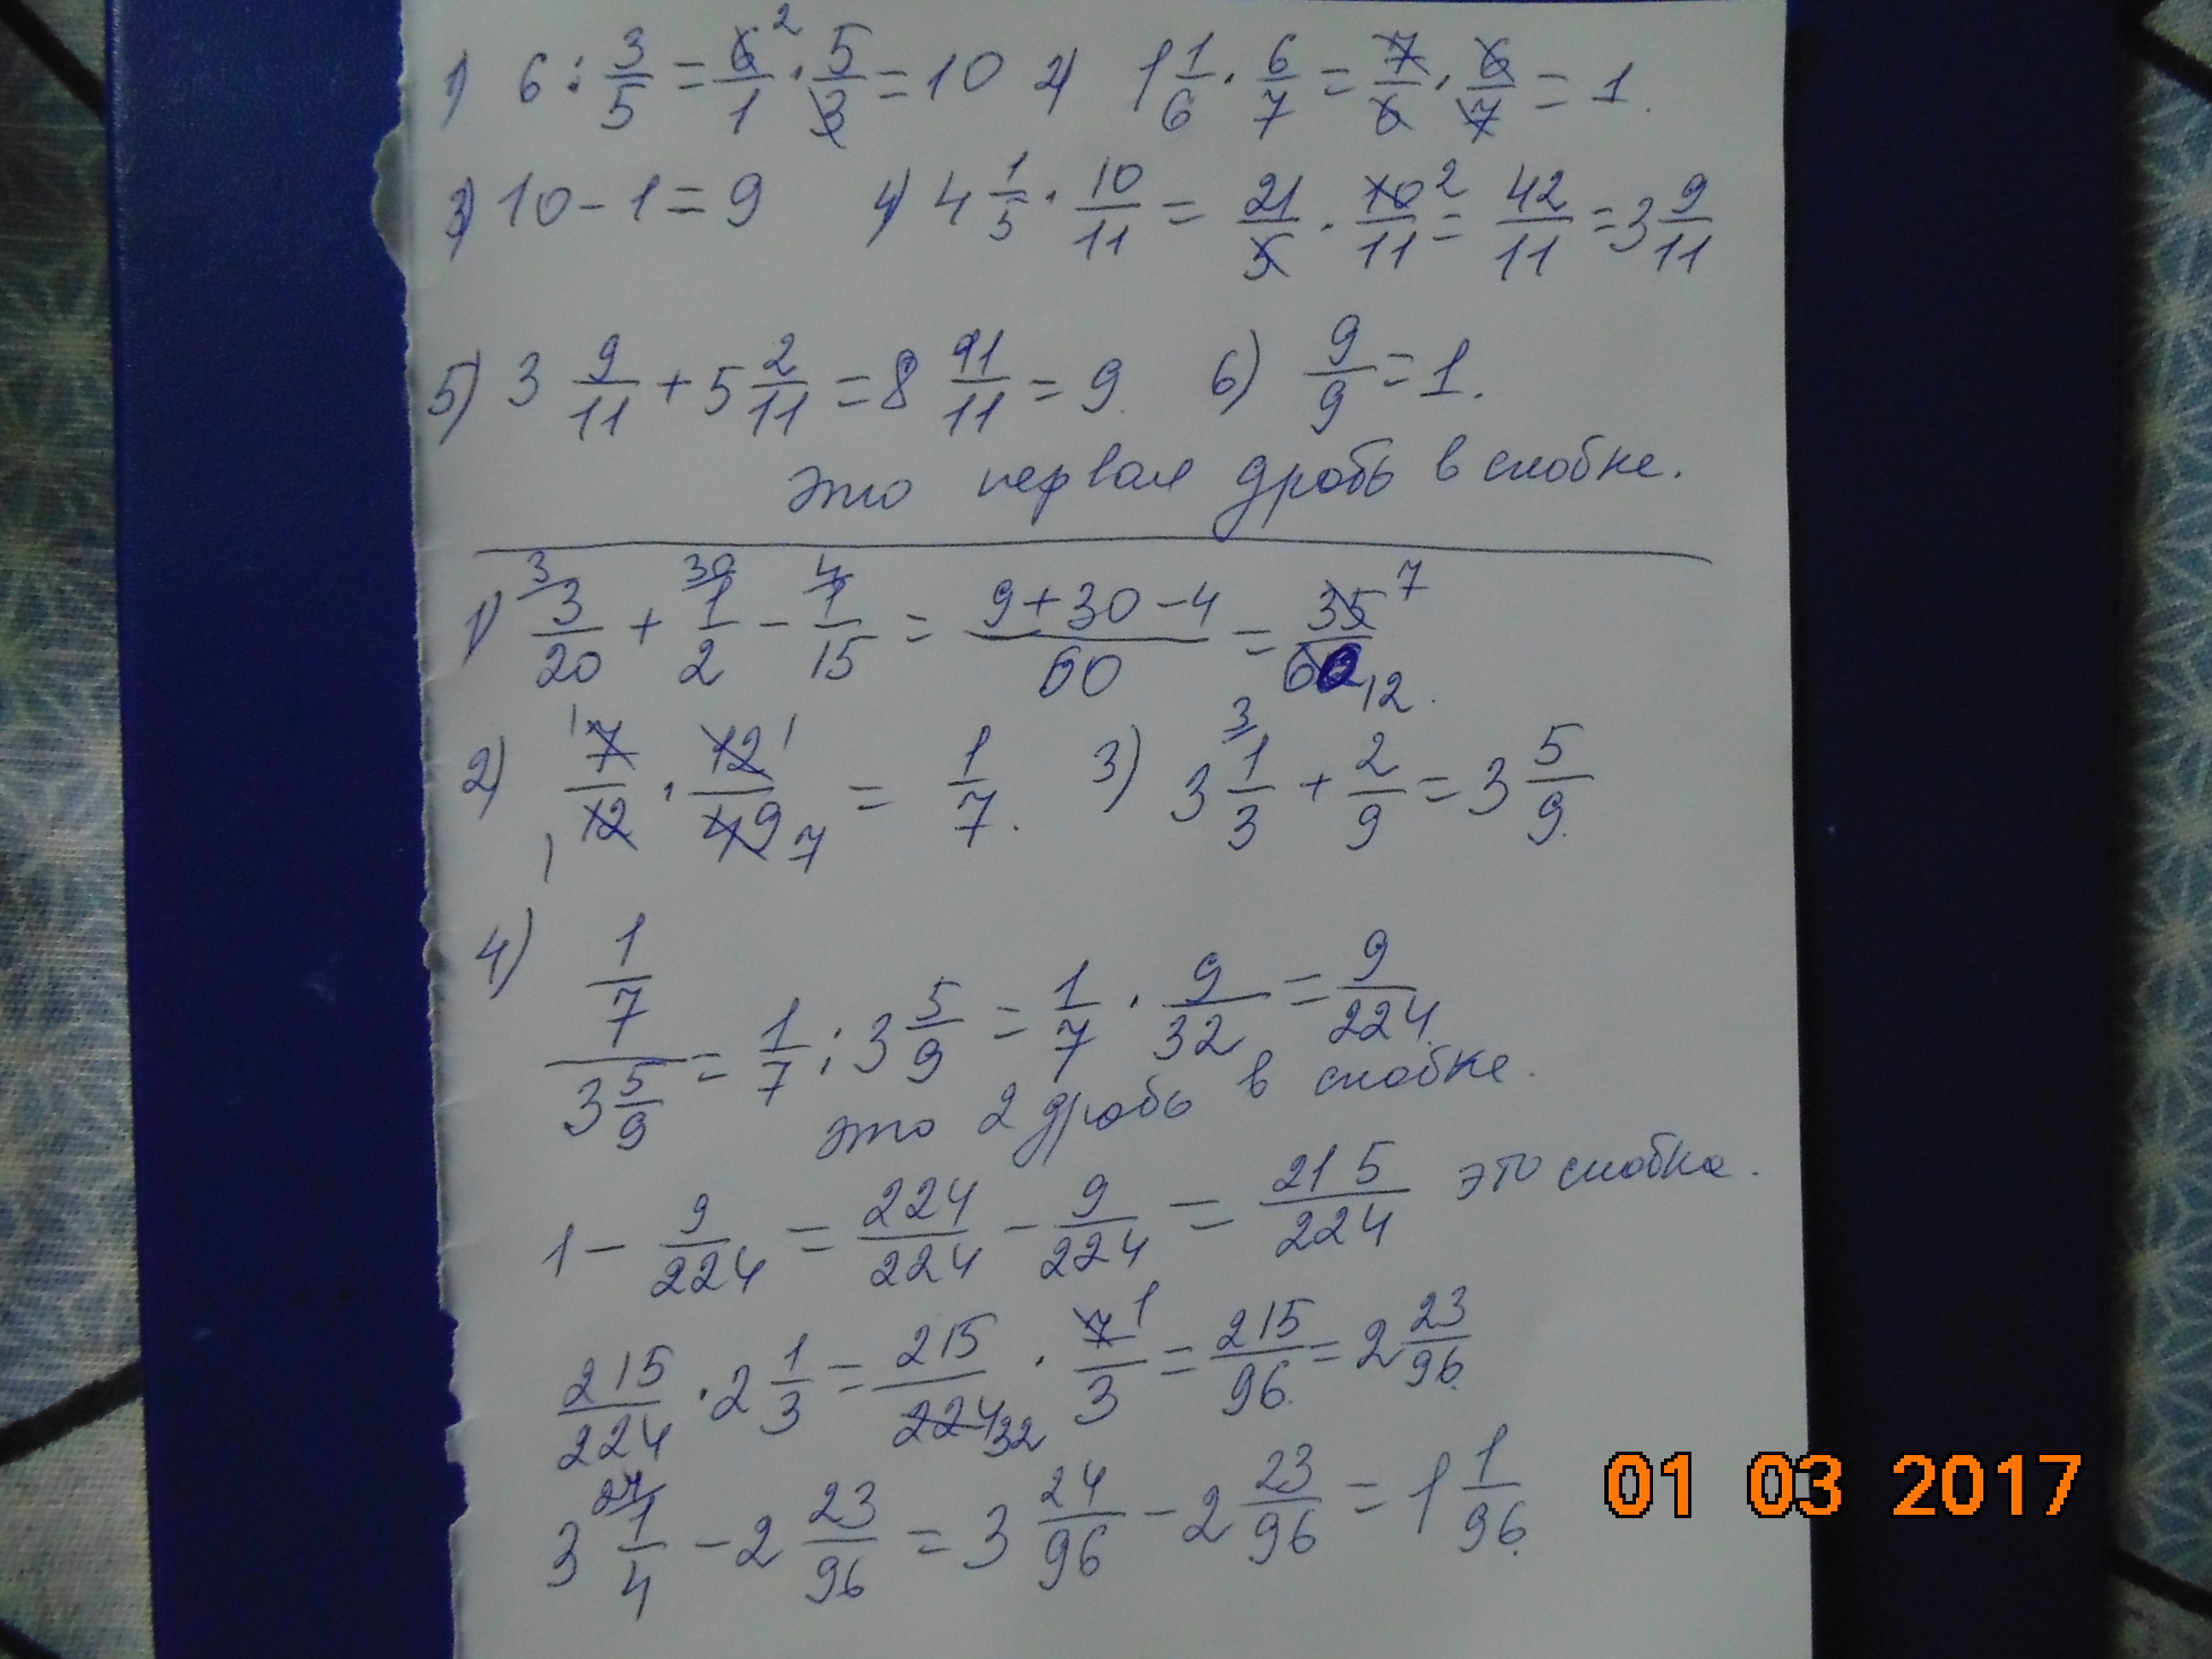 1) 6 : 3/5 = 6/1 ² · 5/3 = 10 2) 1 1/6 · 6/7 = 7/6 · 6/7 = 1.
3) 10 - 1 = 9 4) 4 1/5 · 10/11 = 21/5 · 10/11 ² = 42/11 = 3 9/11
5) 3 9/11 + 5 2/11 = 8 11/11 = 9. 6) 9/9 = 1.
это первая дробь в скобке.
1) ³ 3/20 + ³⁰ 1/2 - ⁴ 1/15 = (9+30-4)/60 = 35/60 7 12.
2) 1 7/12 1 · 12/49 1 7 = 1/7. 3) 3 ³ 1/3 + 2/9 = 3 5/9.
4) (1/7)/(3 5/9) = 1/7 : 3 5/9 = 1/7 · 9/32 = 9/224.
это 2 дробь в скобке.
1 - 9/224 = 224/224 - 9/224 = 215/224 это скобка.
215/224 · 2 1/3 = 215/224 32 · 7/3 1 = 215/96. = 2 23/96.
3 ²⁴ 1/4 - 2 23/96 = 3 24/96 - 2 23/96 = 1 1/96.
01 03 2017